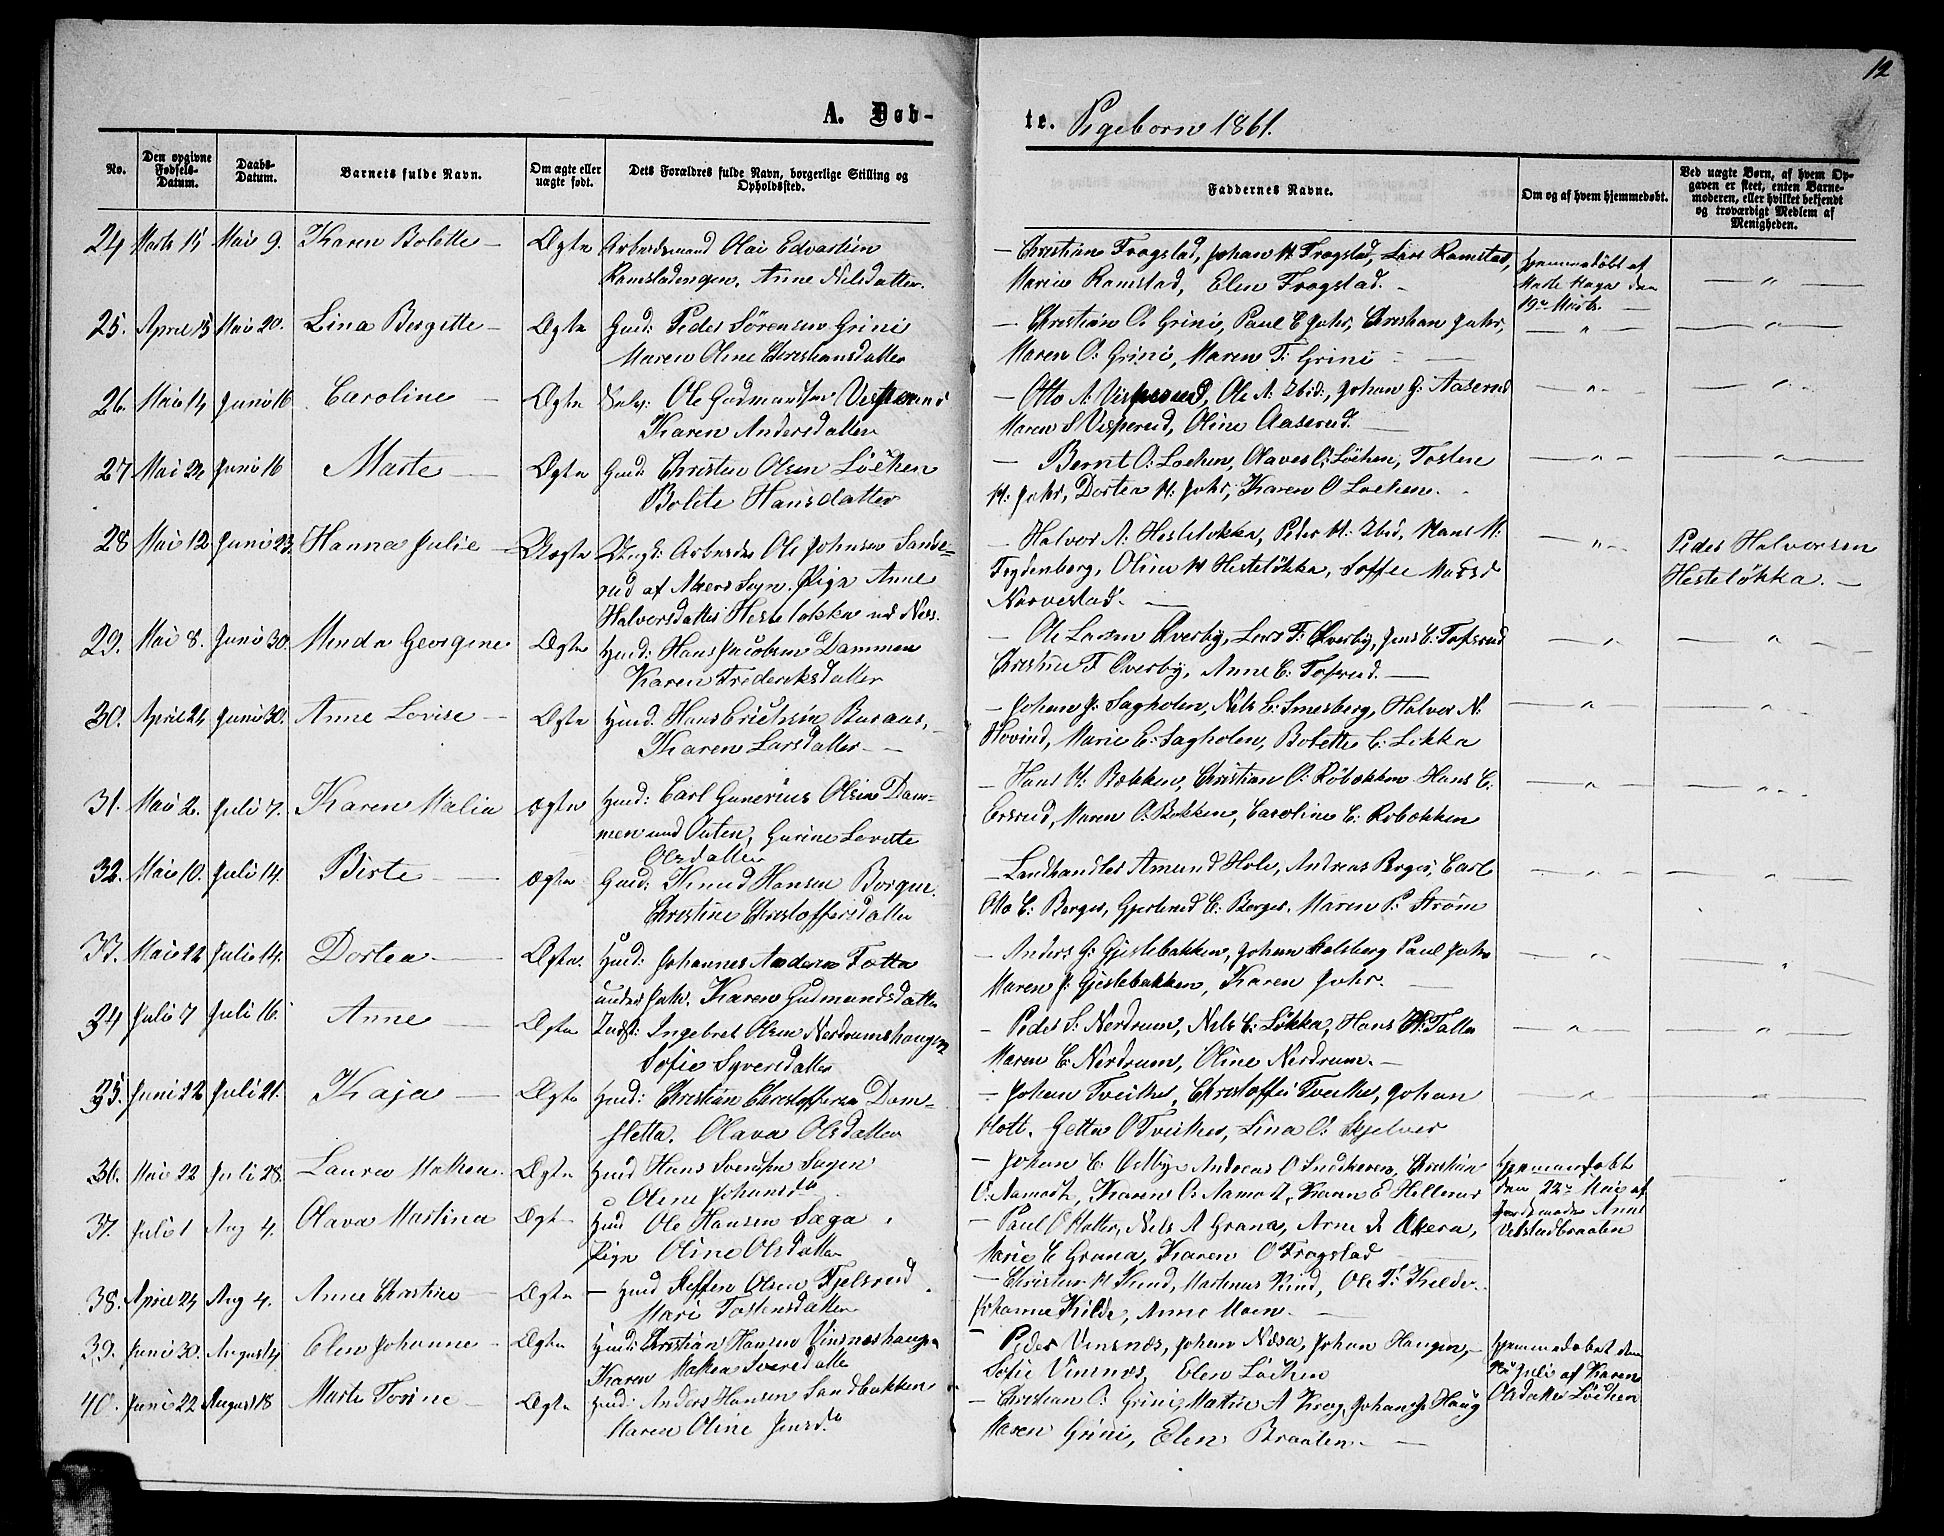 12
A. Døb-
te. Pigebørn 1861.
No.
Den opgivne Fødsels-Datum.
Daabs-Datum.
Barnets fulde Navn.
Om ægte eller uægte født.
Dets Forældres fulde Navn, borgerlige Stilling og Opholdssted.
Faddernes Navne.
Om og af hvem hjemmedøbt.
Ved uægte Børn, af hvem Opgaven er skeet, enten Barnemoderen, eller hvilket bekjendt og troværdigt Medlem af Menigheden.
24 Marts 15 Mai 9. Karen Bolette Ægte Arbeidsmand Olai Edvardsen
Ramstadengen, Anne Nilsdatter.
Christian Frogstad, Johan H Frogstad, Lars Ramstad,
Marie Ramstad, Elen Frogstad.
Hjemmedøbt af
Marte Haga den
19de Marts.
25. April 15 Mai 20. Lina Birgitte Ægte Huusm: Peder Sørensen Grini
Maren Oline Christiansdatter
Christian O: Grini, Paul E Johr, Christian Johr,
Maren O: Grini, Maren T: Grini
26. Mai 14 Juni 16 Caroline Ægte Selv: Ole Gudmundsen Visperud
Karen Andersdatter
Otto A: Visperud, Ole A: Ibid:, Johan G: Aaserud
Maren S Visperud, Oline Aaserud.
27 Mai 24 Juni 16 Marte Ægte Huusm: Christen Olsen Löchen
Bolite Hansdatter
Bernt O: Lochen, Olaves O: Löchen, Tosten
H: Johr, Dortea H: Johr, Karen O Lochen.
28 Mai 12 Juni 23. Hanna Julie Uægte Ungk: Arbeider Ole Johnsen Sande-
rud af Akers Sogn. Pige Anne
Halvorsdatter Hestelökka
Halvor A: Hestelökka, Peder H: Ibid, Hans M:
Frydenberg, Oline H Hestelökka, Soffie
Narvestad.
Peder Halvorsen
Hestelökka.
29. Mai 8. Juni 30. Minda Georgine Ægte Huusm: Hans Jacobsen Dammen
Karen Frideriksdatter
Ole Larsen Överby, Lars F: Överby, Jens C. Tofsrud
Christine F Överby, Anne C: Tofsrud.
30. April 24 Juni 30. Anne Lovise Ægte Huusm. Hans Erichsen Buraas,
Karen Larsdatter
Johan J: Sagholen, Nils C: Smedberg, Halvor N:
Hovind, Marie E: Sagholen, Bolette C: Lökka
31. Mai 2. Juli 7. Karen Malia Ægte Huusm: Carl Gunerius Olsen Dam-
men und Outen, Gurine Lovitte
Olsdatter
Hans H: Bækken, Christian O: Röbækken Hans C:
Ersrud, Maren O: Bækken, Caroline C: Robækken
32. Mai 10. Juli 14. Birte Ægte Gaard: Knud Hansen Borgen.
Christine Christoffersdatter
Landhandler Amund Hole, Andreas Berger, Carl
Otto C: Berger, Gjertrud C: Berger. Maren P. Ström
33. Mai 22 Juli 14. Dortea Ægte. Huusm: Johannes Andersen Tætta
under Johr. Karen Gudmundsdatter
Anders G: Gjestebakken, Johan Kolsberg Paul Johr
Maren J: Gjestebakken, Karen Johr.
34 Juli 7 Juli 16. Anne Ægte Inds: Ingebret Olsen Nerdrumshaugen
Sofie Syversdatter
Peder S: Nerdrum, Nils C: Lökka, Hans H: Talla
Maren C: Nerdrum, Oline Nerdrum.
35. Juni 22 Juli 21. Kaja Ægte Huusm: Christian Christoffersen Dam-
sletta. Olava Olsdatter
Johan Tveiter, Christoffer Tveiter, Johan
Holt. Getta O Tveiter, Lina O: Skjelver
36. Mai 22 Juli 28. Laura Mathea Ægte Huusm Hans Svendsen Sagen
Oline Johansdr
Johan C. Velby Andreas O Sundhaven, Christian
O: Aamodt, Karen O: Aamodt, Karen E Hellerud
Hjemmedøbt
den 22de Mai af
Jordemoder Anne
Velstadbraaten
37. Juli 1 Aug 4. Olava Martina Ægte Huusm Ole Hansen Sæga
Pige Oline Olsdatter
Paul O Hatter, Nils A Grana, Arne J: Akera,
Marie E Grana, Karen O Frogstad
38. April 24 Aug 4. Anne Christine Ægte Huusm Steffen Olsen Fjelsrud
Mari Tostensdatter
Christen H Kind, Martinus Kind, Ole T: Kilde
Johanne Kilde, Anne Moen.
39. Juni 30. August 4 Elen Johanne Ægte Huusm: Christian Hansen Vinsneshaugen
Karen Mathea Sveresdatter
Peder Vinsnæs, Johan Næsa, Johan Haugen,
Sofie Vinsnæs, Elen Löchen
Hjemmedøbet den
Juli af Karen
Olsdatter Löchen
40. Juni 22 August 18 Marte Torine Ægte Huusm: Anders Hansen Sandbakken
Maren Oline Jensdr
Christian O: Grini, Martin A Krog, Johan J: Haug
Maren Grini, Elen Braaten.